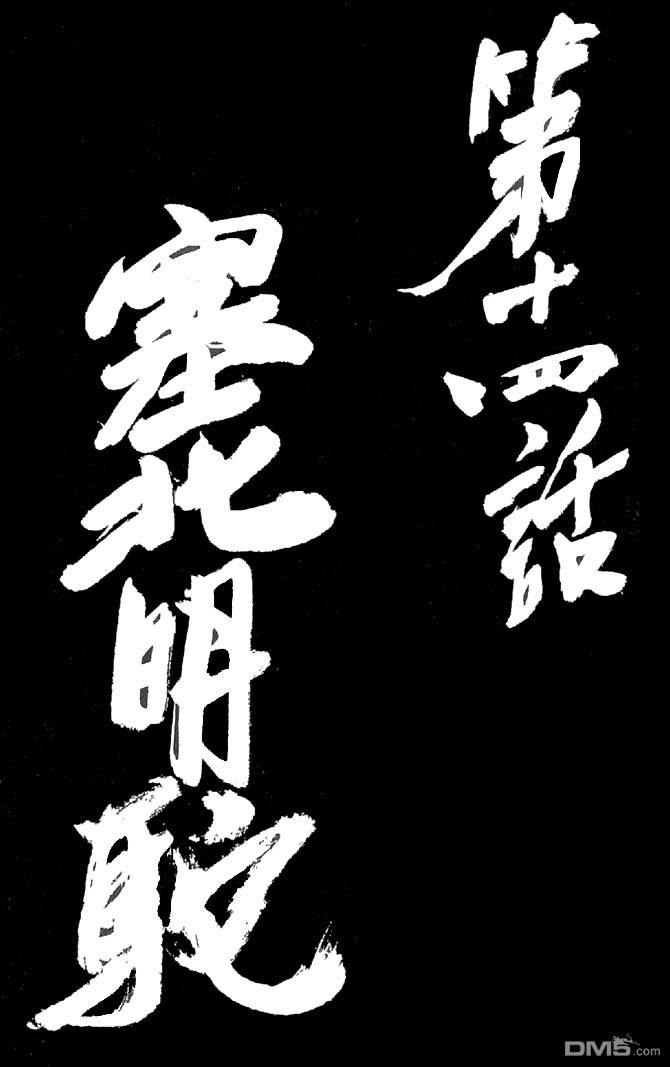 第十四話
塞北明駝
DM5.com